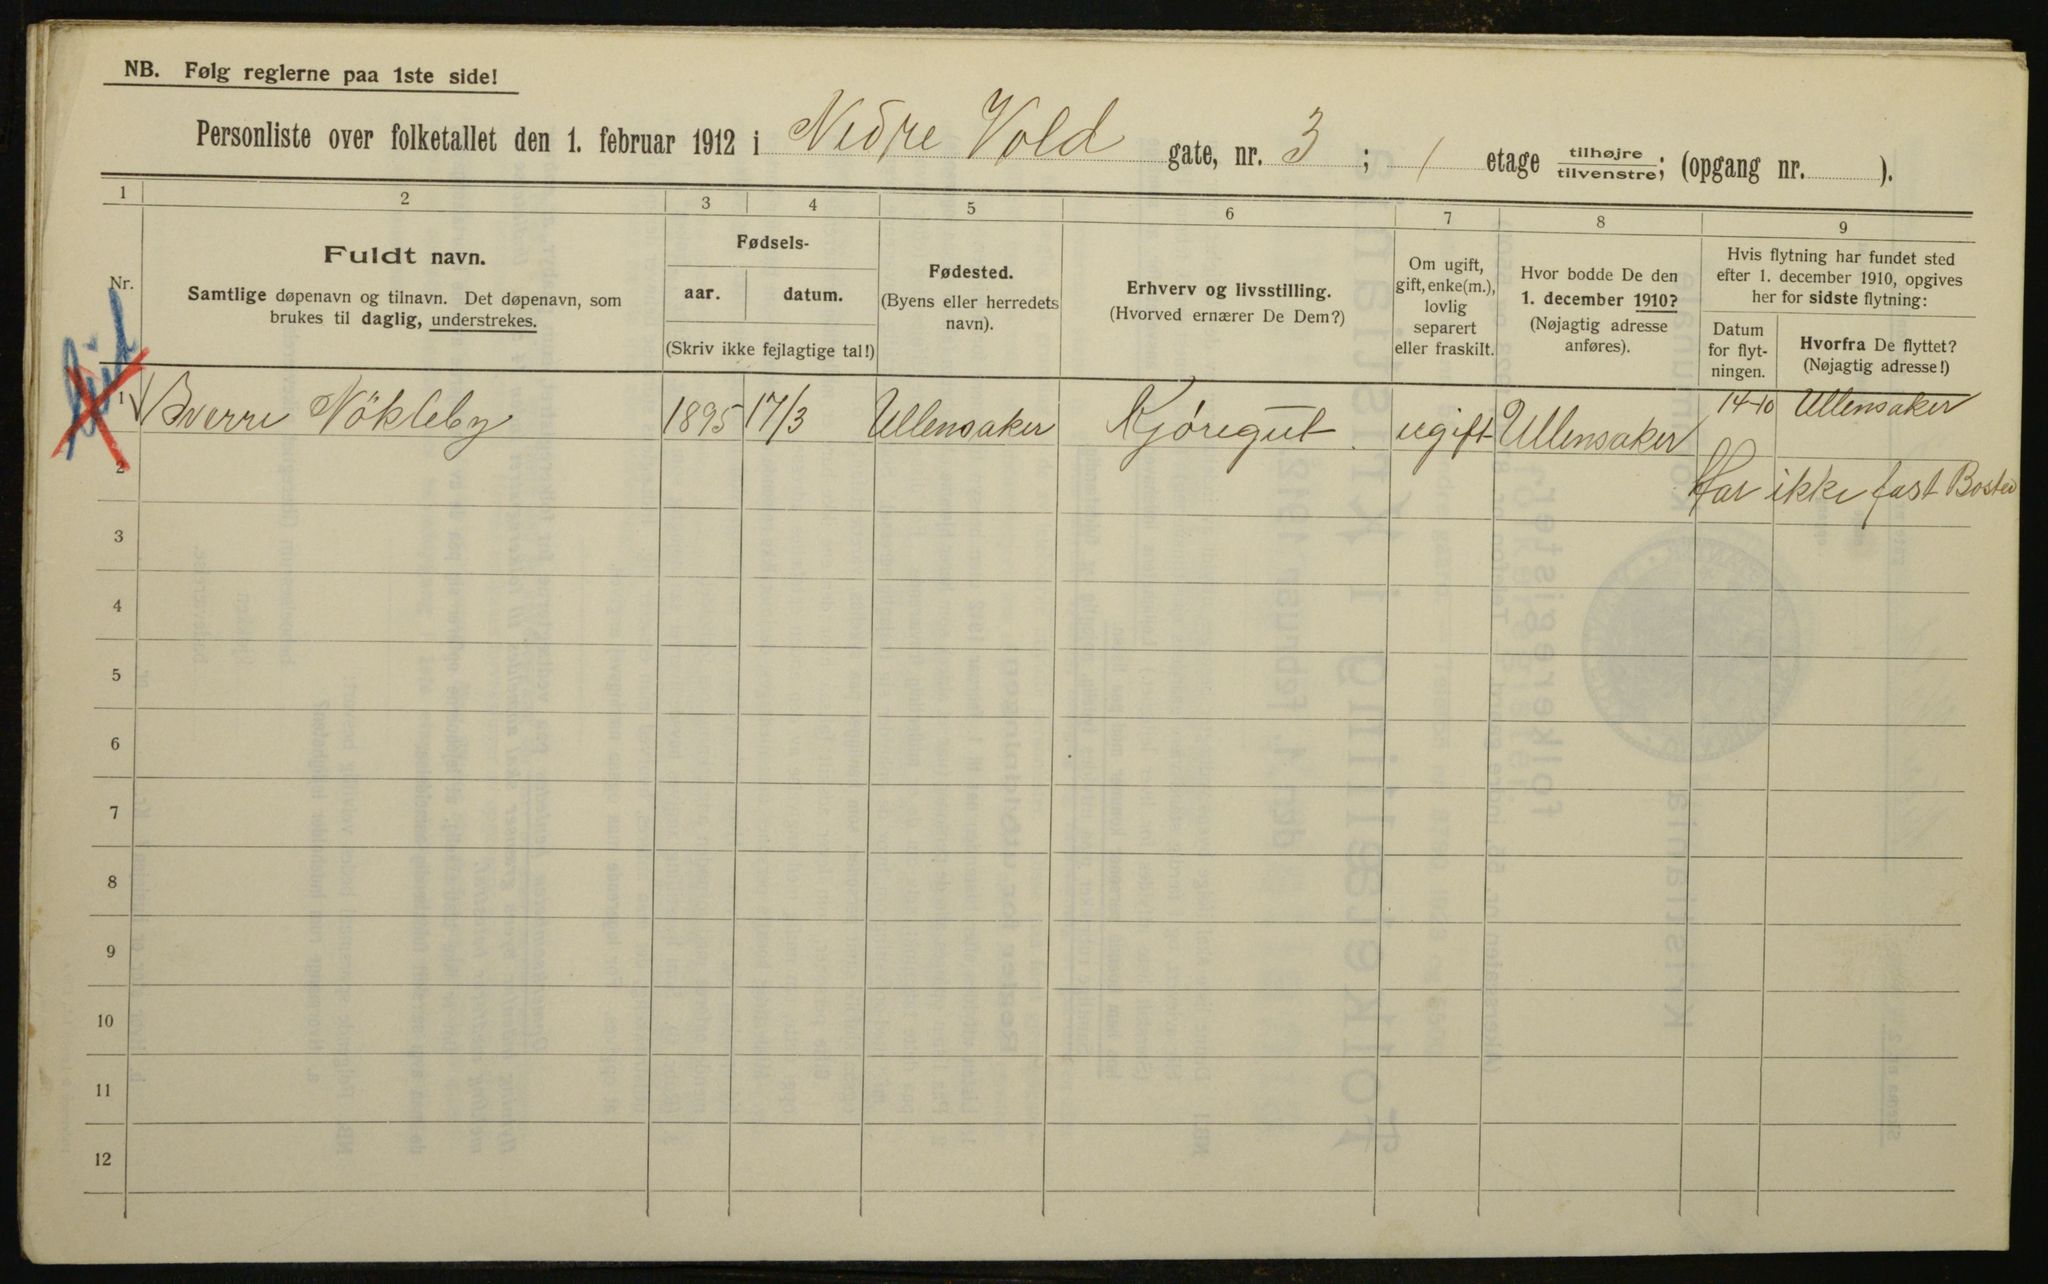 NB. Følg reglerne paa 1ste side!
Personliste over folketallet den 1. februar 1912 i Nedre Vold gate, nr. 3 ; 1 etage tilhøjre tilvenstre; (opgang nr. ).
1 2 3 4 5 6 7 8 9
Nr.
Fuldt navn.
Samtlige døpenavn og tilnavn. Det døpenavn, som
brukes til daglig, understrekes.
Fødsels-
aar. datum.
(Skriv ikke fejlagtige tal!)
Fødested.
(Byens eller herredets
navn).
Erhverv og livsstilling.
(Hvorved ernærer De Dem?)
Om ugift,
gift, enke(m.),
lovlig
separert
eller fraskilt.
Hvor bodde De den
1. december 1910?
(Nøjagtig adresse
anføres).
Hvis flytning har fundet sted
efter 1. december 1910, opgives
her for sidste flytning:
Datum
for flyt-
ningen.
Hvorfra De flyttet?
(Nøjagtig adresse!)
1 Sverre Nökleby 1895 17/3 Ullensaker Kjøregut ugift Ullensaker 14-10 Ullensaker
2 Har ikke fast Bosted
3
4
5
6
7
8
9
10
11
12